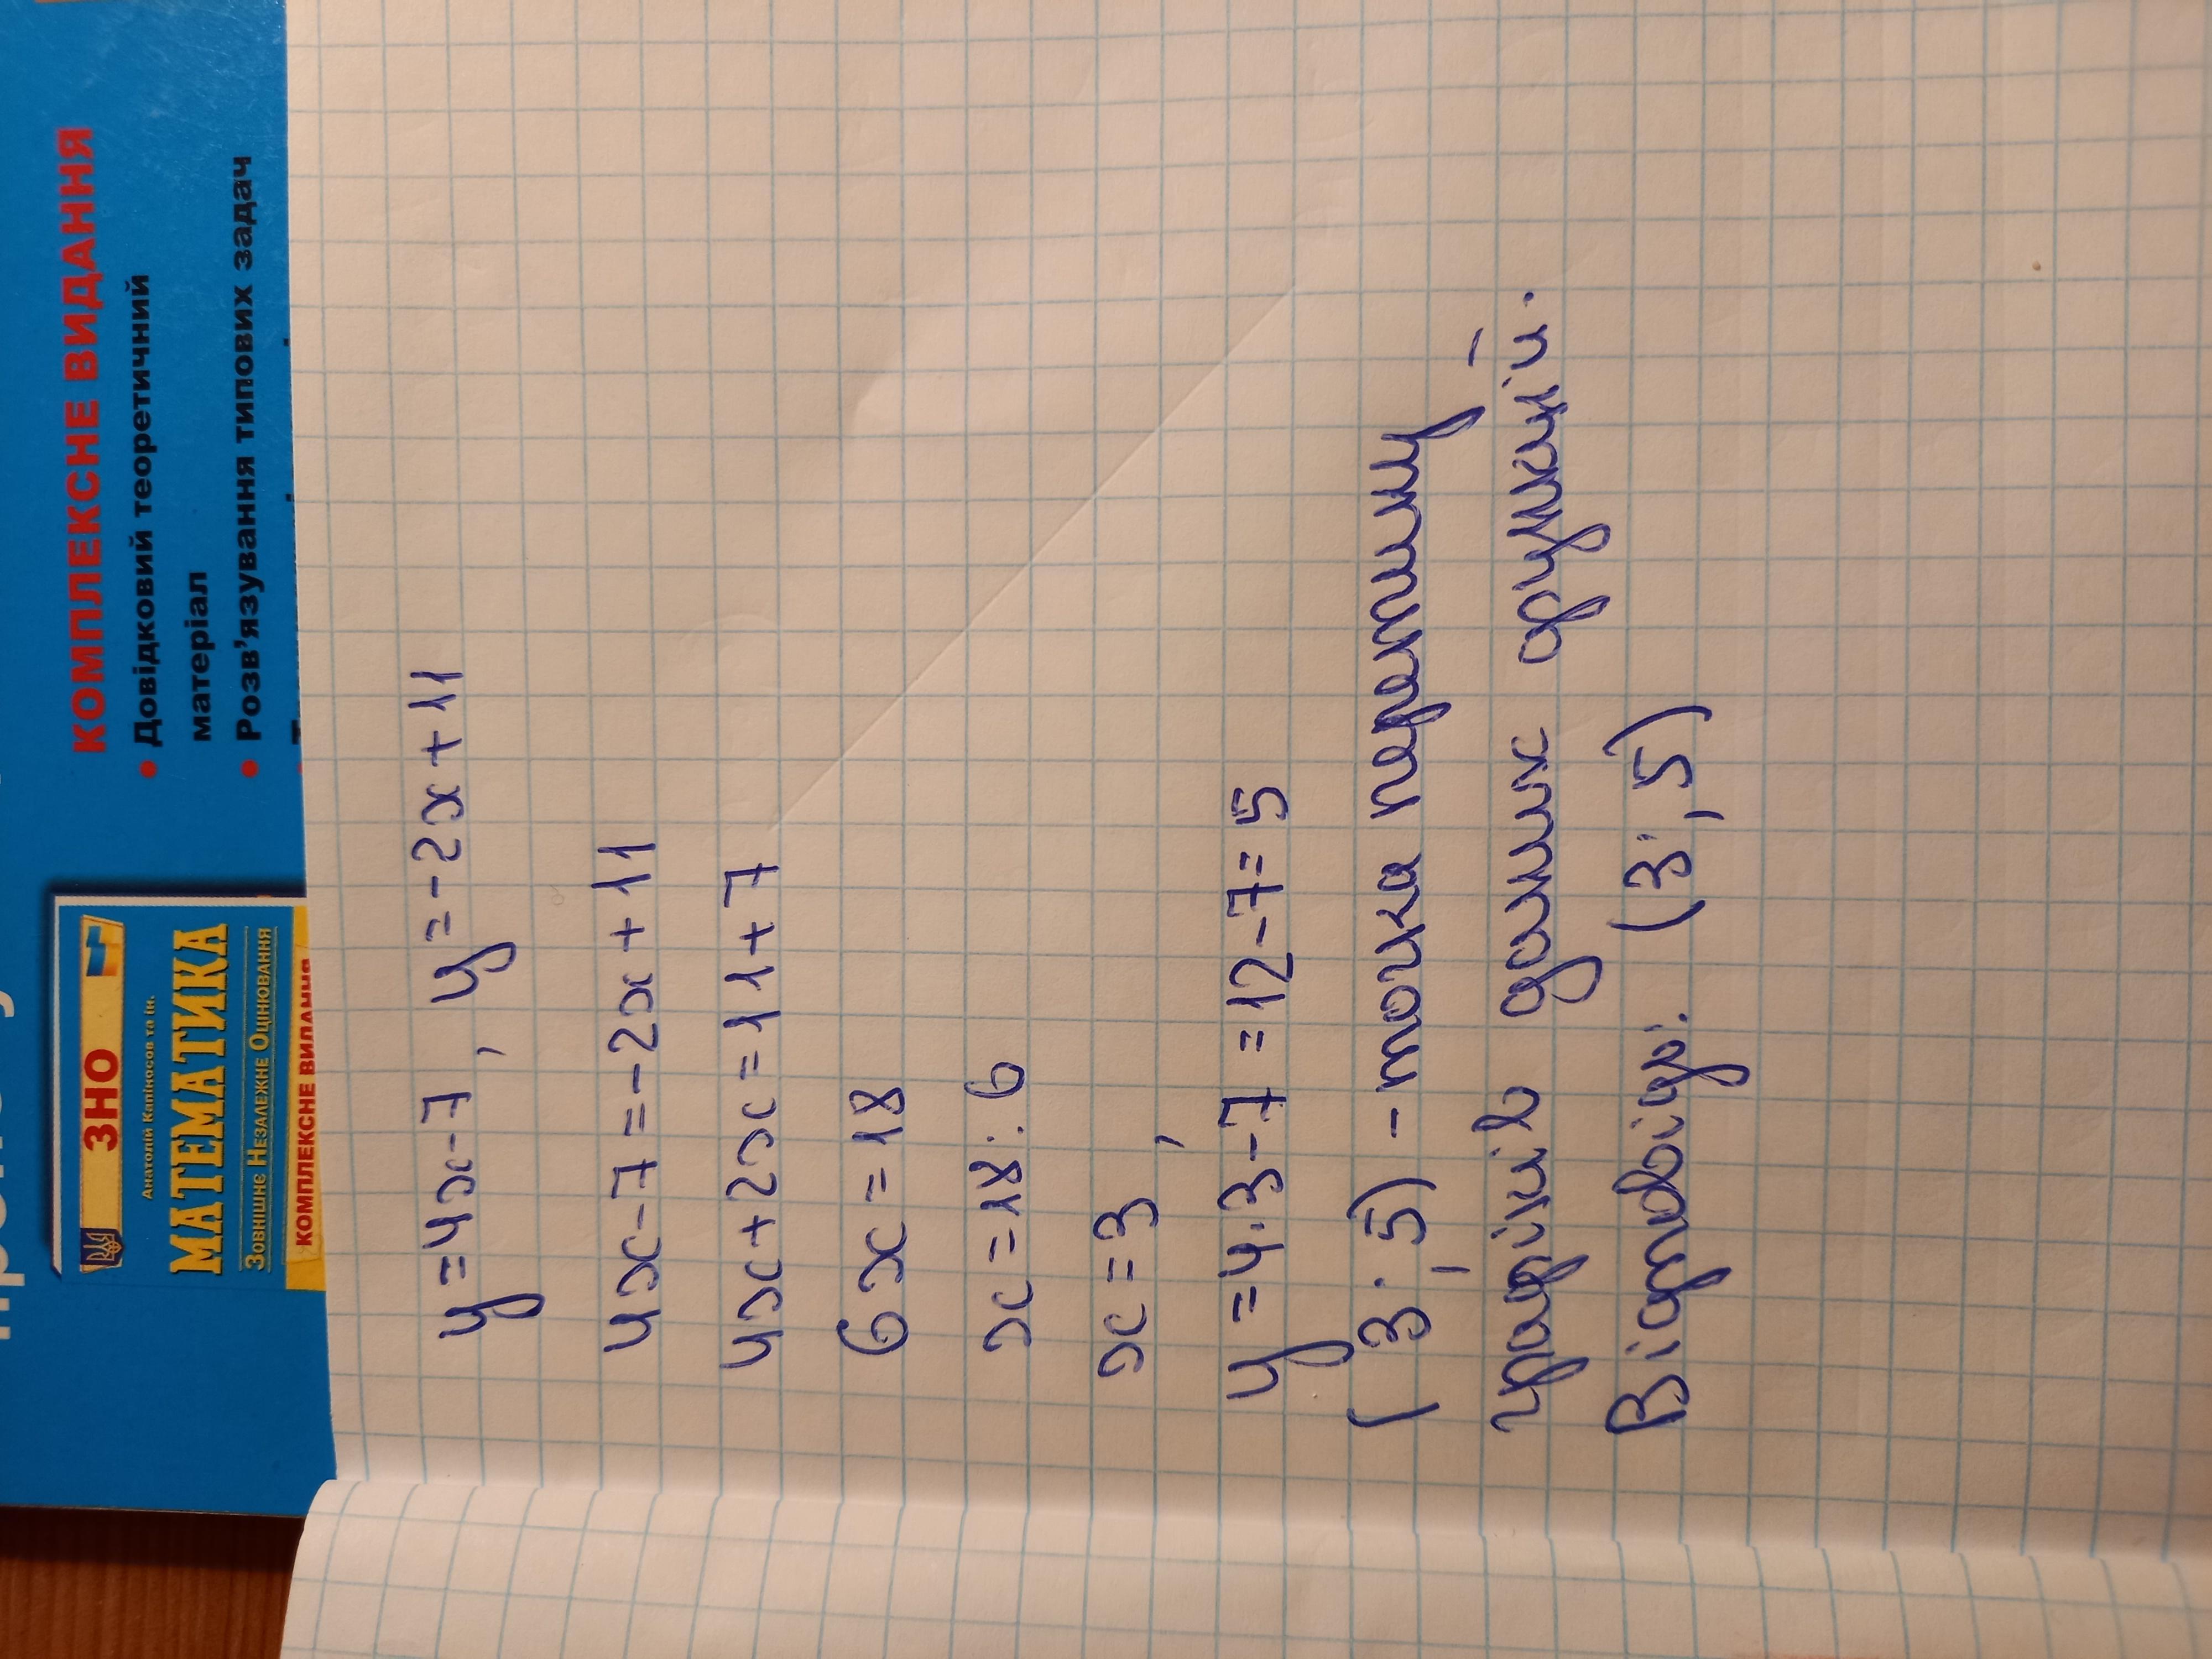 КОМПЛЕКСНЕ ВИДАННЯ
• Довідковий теоретичний
матеріал
• Розв'язування типових задач
ЗНО
Анатолій Капіносов та ін.
МАТЕМАТИКА
Зовнішнє Незалежне Оцінювання
КОМПЛЕКСНЕ ВИДАННЯ
y=4x-7, y=-2x+11
4x-7=-2x+11
4x+2x=11+7
6x=18
x=18:6
x=3,
y=4·3-7=12-7=5
(3;5)-точка перетину
графіків даних функцій.
Відповідь: (3;5)